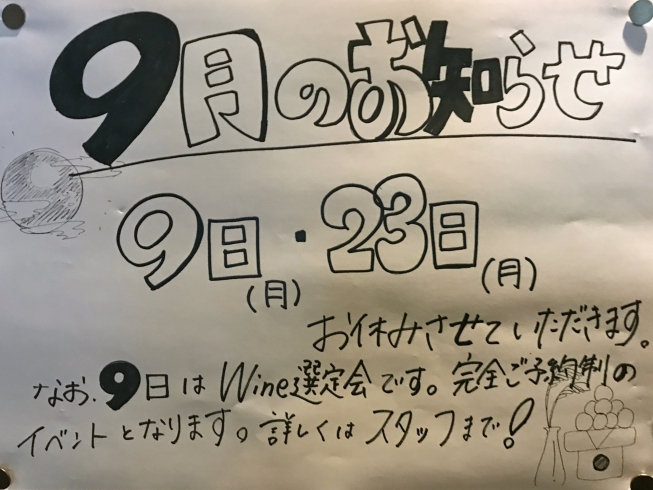 9月のお知らせ
9日・23日
(月) (月)
お休みさせていただきます。
なお、9日はWine選定会です。完全ご予約制の
イベントとなります。詳しくはスタッフまで!